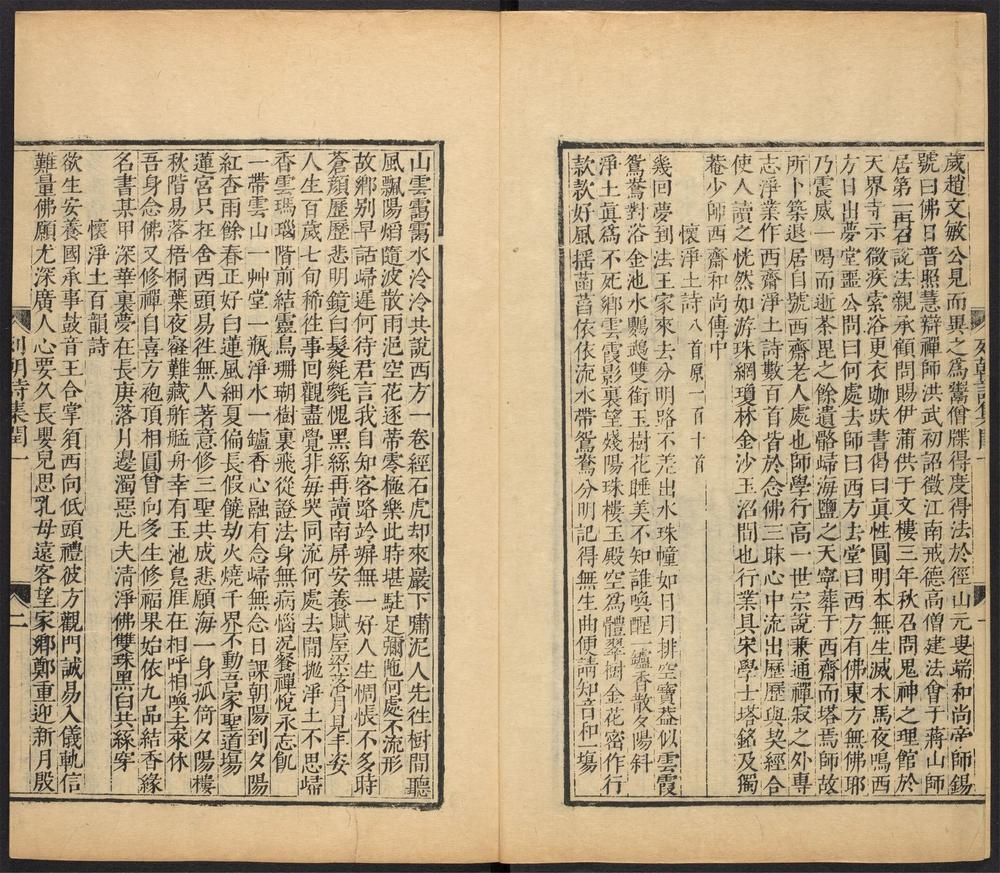 歲趙文敏公見而異之為鬻僧牒得度得法於徑山元叟端和尚帝師錫
號曰佛日普照慧辯禪師洪武初詔徵江南戒德高僧建法會于蔣山師
居第一再召說法親承顧問賜伊蒲供于文樓三年秋召問鬼神之理館於
天界寺示微疾索浴更衣跏趺書偈曰真性圓明本無生滅木馬夜鳴西
方日出夢堂噩公問曰何處去師曰西方去堂曰西方有佛東方無佛耶
乃震威一喝而逝荼毘之餘遺骼歸海鹽之天寧葬于西齋而塔焉師故
所卜築退居自號西齋老人處也師學行高一世宗說兼通禪寂之外專
志淨業作西齋淨土詩數百首皆於念佛三昧心中流出歷歷與契經合
使人讀之恍然如游珠網瓊林金沙玉沼間也行業具宋學士塔銘及獨
菴少師西齋和尚傳中
懷淨土詩八首原一百十首
幾回夢到法王家來去分明路不差出水珠幢如日月排空寶葢似雲霞
鴛鴦對浴金池水鸚鵡雙銜玉樹花睡美不知誰喚醒一鑪香散夕陽斜
淨土真為不死鄉雲霞影裏望殘陽珠樓玉殿空為體翠樹金花密作行
款款好風搖菡萏依依流水帶鴛鴦分明記得無生曲便請知音和一塲
列朝詩集閏一
一
山雲靄靄水泠泠共說西方一卷經石虎却來巖下嘯泥人先徃樹間聽
風飄陽熖隨波散雨浥空花逐蒂零極樂此時堪駐足彌陁何處不流形
故鄉别早話歸遲何待君言我自知客路竛竮無一好人生惆悵不多時
蒼顏歷歷悲明鏡白髮毿毿愧黑絲再讀南屏安養賦屋梁落月見丰姿
人生百歲七旬稀徃事回觀盡覺非每哭同流何處去閒抛淨土不思歸
香雲瑪瑙階前結靈鳥珊瑚樹裏飛從證法身無病惱況餐禪悅永忘飢
一帶雲山一艸堂一瓶淨水一鑪香心融有念歸無念日課朝陽到夕陽
紅杏雨餘春正好白蓮風細夏偏長假饒劫火燒千界不動吾家聖道塲
蓮宮只在舍西頭易徃無人著意修三聖共成悲願海一身孤倚夕陽樓
秋階易落梧桐葉夜壑難藏舴艋舟幸有玉池鳧雁在相呼相喚去來休
吾身念佛又修禪自喜方袍頂相圓曾向多生修福果始依九品結香緣
名書某甲深華裏夢在長庚落月邊濁惡凡夫清淨佛雙珠黑白共絲穿
懷淨土百韻詩
欲生安養國承事鼓音王合掌須西向低頭禮彼方觀門誠易入儀軌信
難量佛願尤深廣人心要久長嬰兒思乳母遠客望家鄉鄭重迎新月殷
列朝詩集閏一
二